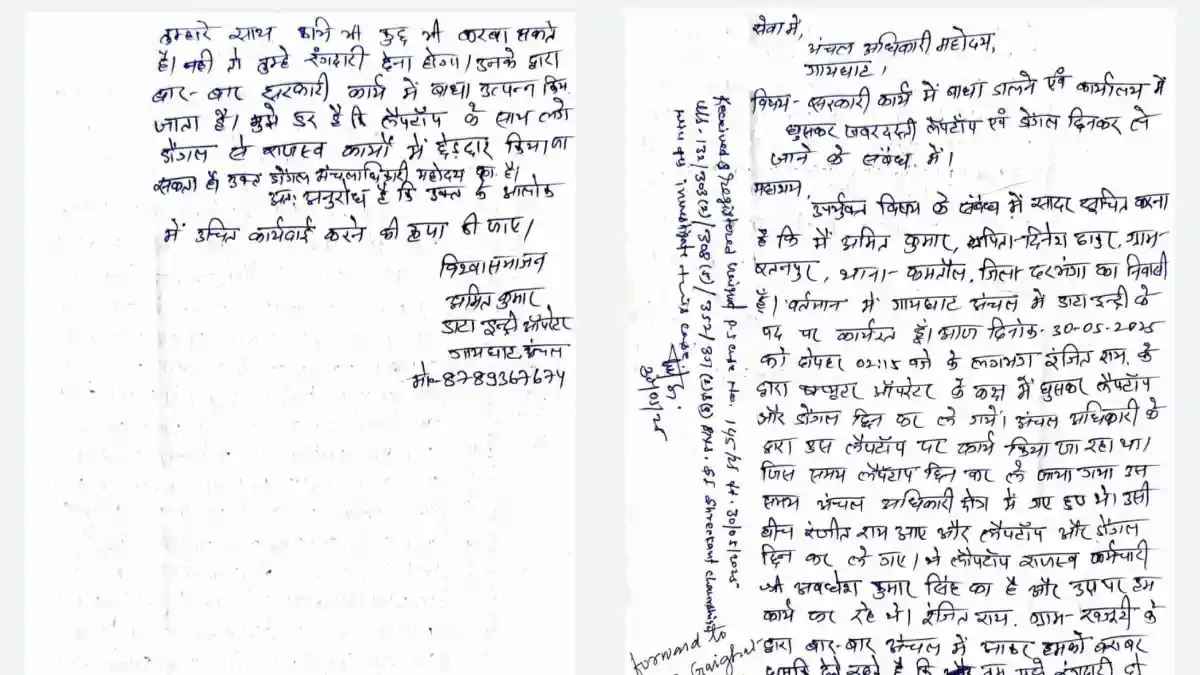 सेवा में,
अंचल अधिकारी महोदय,
गायघाट।
विषय- सरकारी कार्य में बाधा डालने एवं कार्यालय में
घुसकर जबरदस्ती लैपटॉप एवं डोंगल छिनकर ले
जाने के संबंध में।
महाशय,
उपर्युक्त विषय के संबंध में सादर सूचित करना
है कि मैं अमित कुमार, पिता-दिनेश ठाकुर, ग्राम-
रतनपुर, थाना- कमतौल, जिला दरभंगा का निवासी
हूँ। वर्तमान में गायघाट अंचल में डाटा इन्ट्री के
पद पर कार्यरत हूँ। आज दिनांक- 30-05-2025
को दोपहर 02:15 बजे के लगभग रंजित राय, के
द्वारा कम्प्यूटर ऑपरेटर के कक्ष में घुसकर लैपटॉप
और डोंगल छिन कर ले गये। अंचल अधिकारी के
द्वारा उस लैपटॉप पर कार्य किया जा रहा था।
जिस समय लैपटॉप छिन कर ले जाया गया उस
समय अंचल अधिकारी क्षेत्र में गए हुए थे। उसी
बीच रंजीत राय आए और लैपटॉप और डोंगल
छिन कर ले गए। ये लैपटॉप राजस्व कर्मचारी
श्री अवधेश कुमार सिंह का है और उसपर हम
कार्य कर रहे थे। रंजित राय, ग्राम- के
द्वारा बार-बार अंचल में आकर हमको बराबर
धमकी देते रहते है कि तुम मुझे रंगदारी दो
Received & Registered P.S case No. 145/25 dt. 30/05/25
U/S- 132/308(2)/308(5)/352/351(2)&(3) BNS. & SI Shreekant
investigate this case.
30/05/25
forward to
Gaighat
तुम्हारे साथ कभी भी कुछ भी करवा सकते
है। नही तो तुम्हे रंगदारी देना होगा। उनके द्वारा
बार-बार सरकारी कार्य में बाधा उत्पन्न किया
जाता है। मुझे डर है कि लैपटॉप के साथ लगे
डोंगल से राजस्व कार्यों में छेड़छाड़ किया जा
सकता है। उक्त डोंगल अंचलाधिकारी महोदय का है।
अतः अनुरोध है कि उक्त के आलोक
में उचित कार्यवाई करने की कृपा की जाए।
विश्वासभाजन
अमित कुमार
डाटा इन्ट्री ऑपरेटर
गायघाट, अंचल
मो०-8789367674